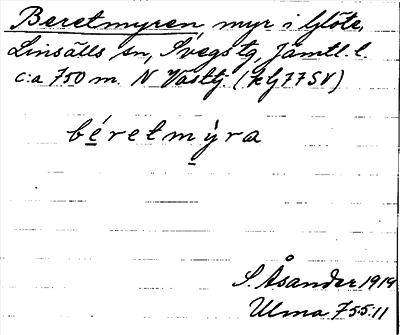 Beretmyren, myr i Glöte,
Linsälls sn, Svegs tg, Jämtl. l.
c:a 750 m. N Västtj. (klj 77 SV)
béretmýra
S. Åsander 1919
Ulma 755:11